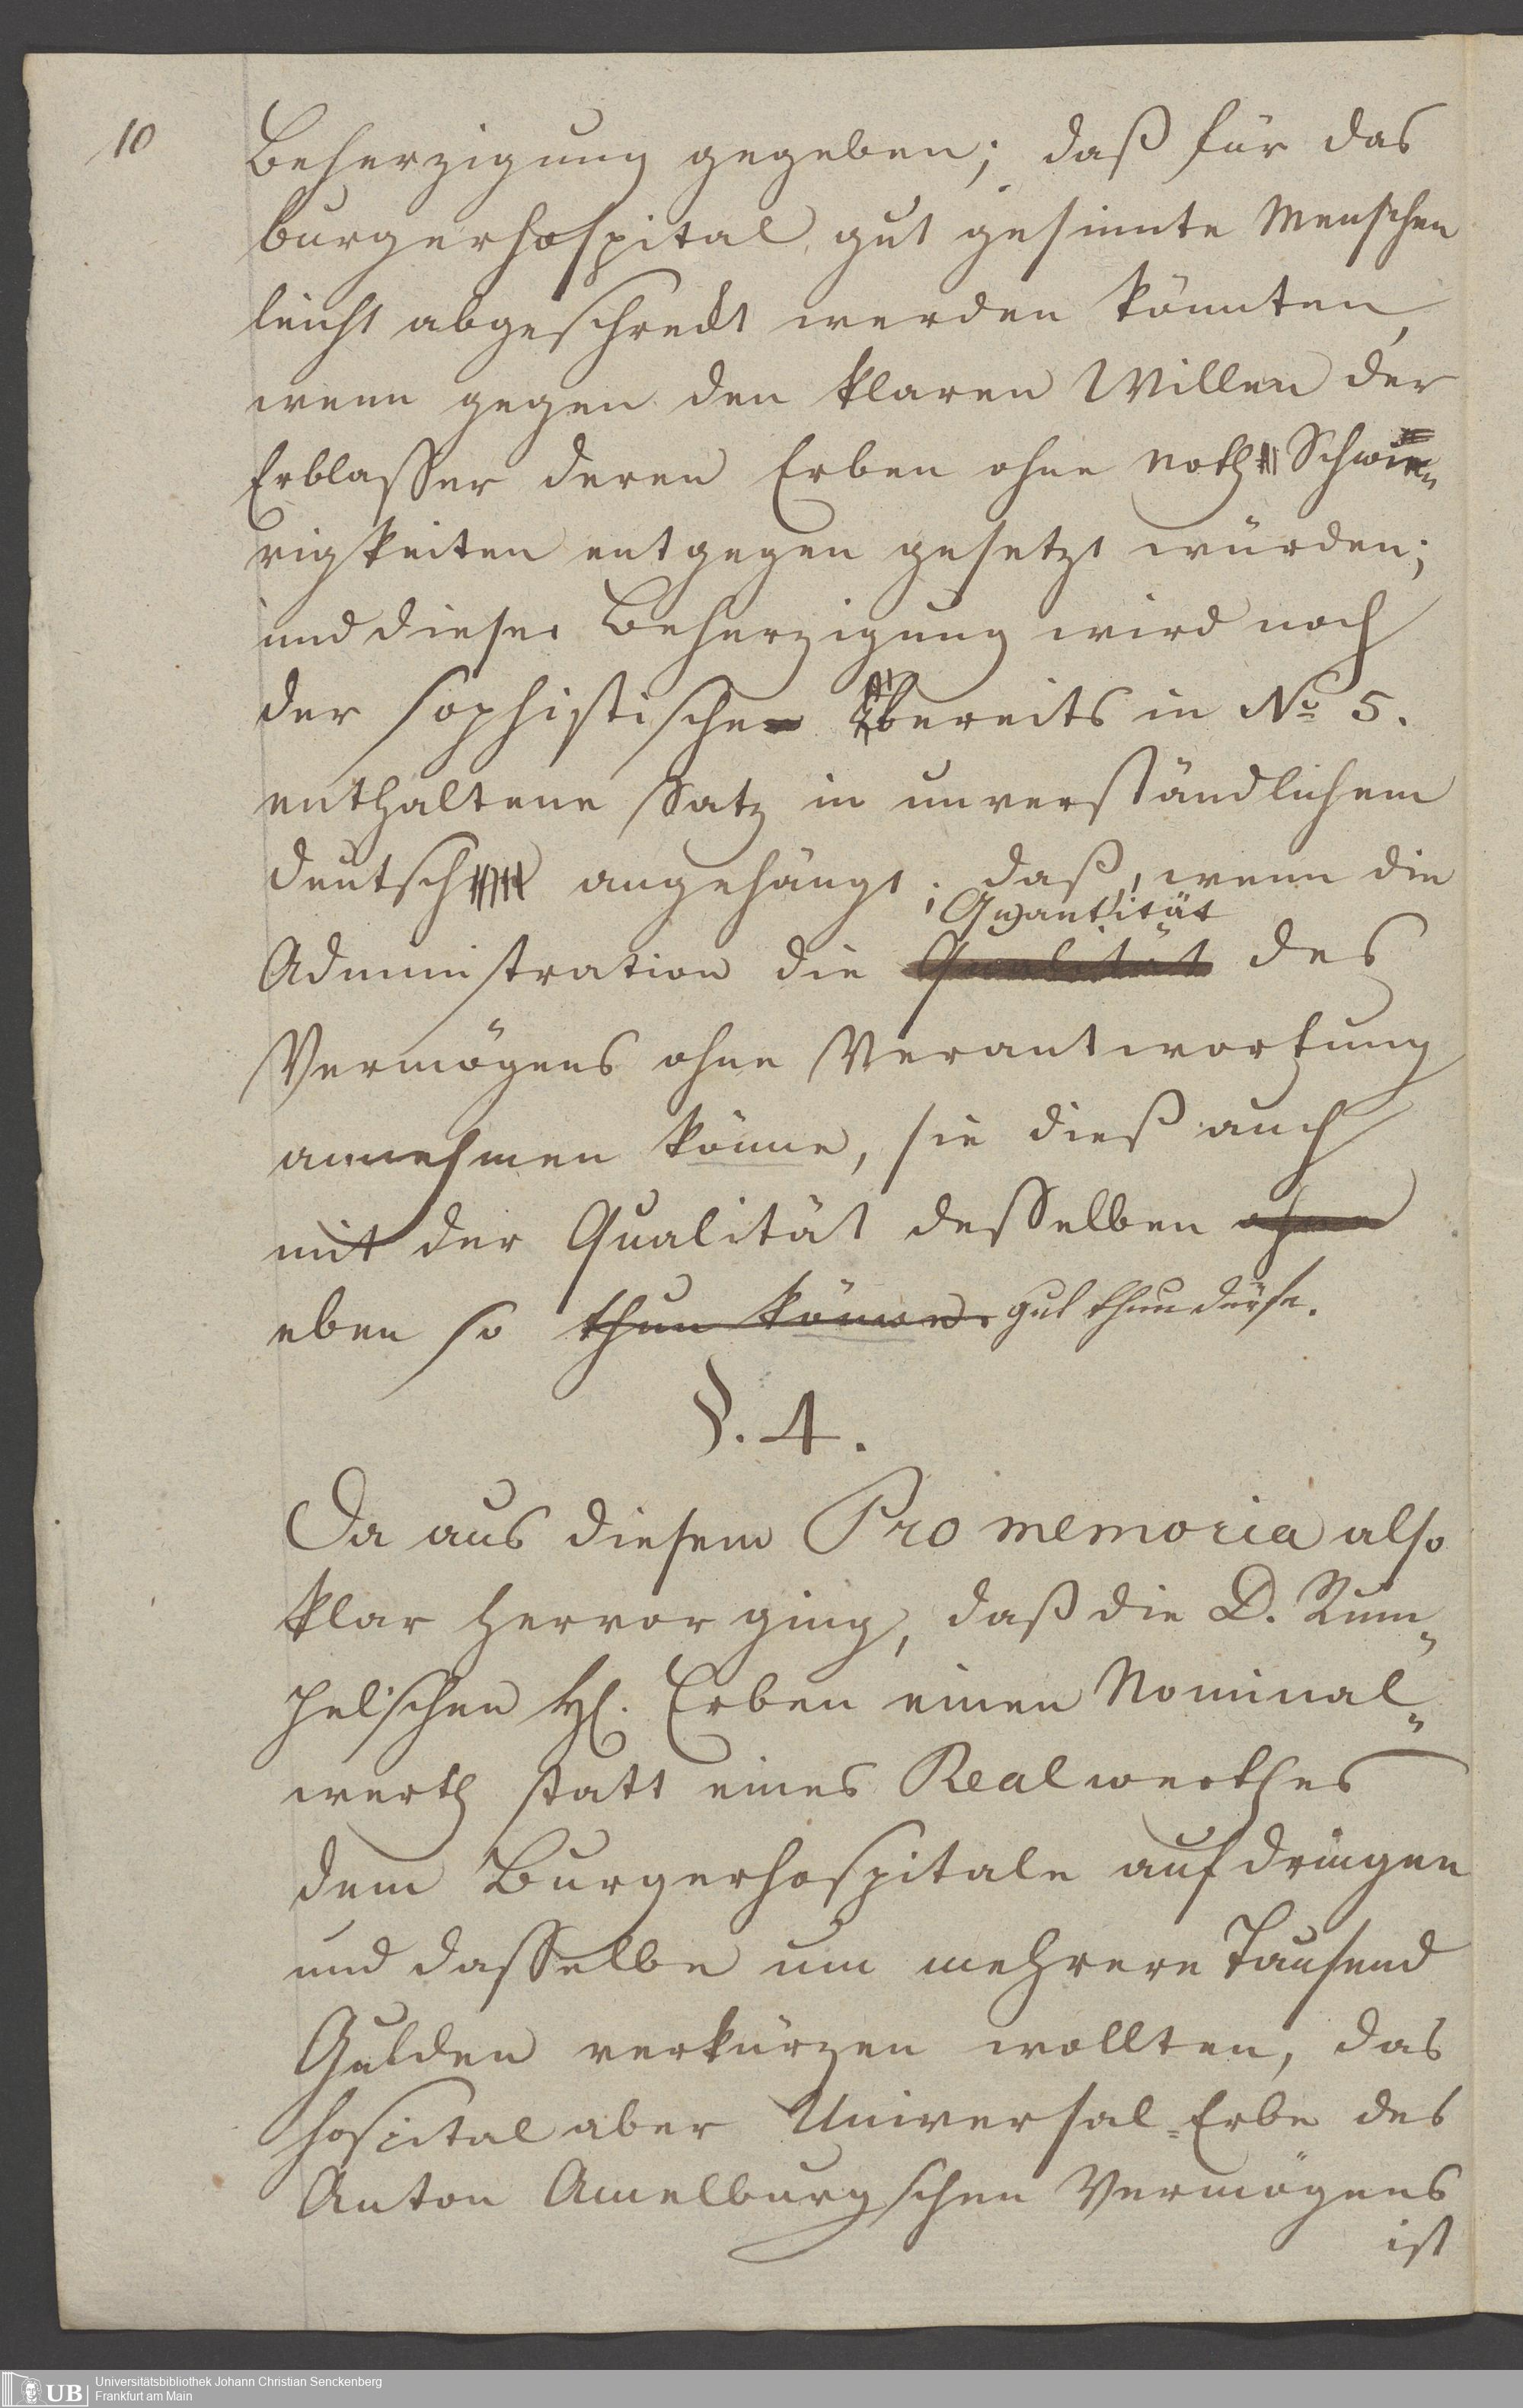 10
Beherzigung gegeben; daß für das
burgerhospital gut gesinnte Menschen
leicht abgeschreckt werden könnten,
wenn gegen den klaren Willen der
Erblasser deren Erben ohne Noth Schwie„
rigkeiten entgegen gesetzt würden;
und dieser Beherzigung wird noch
der sophistische bereits in No 5.
enthaltene Satz in unverständlichem
deutsch angehängt: daß, wenn die
Quantität
Administration die Qualität des
Vermögens ohne Verantwortung
annehmen könne, sie dieß auch
mit der Qualität desselben ohne
eben so thun könne. gut thun dürfe.
§. 4.
Da aus diesem Pro memoria also
klar hervor ging, daß die D. Rum„
pelschen H. Erben einen Nominal„
werth statt eines Realwerthes
dem Burgerhospitale aufdringen
und dasselbe um mehrere Tausend
Gulden verkürzen wollten, das
hospital aber Universal=Erbe des
Anton Amelburgschen Vermögens
ist
UB
Universitätsbibliothek Johann Christian Senckenberg
Frankfurt am Main